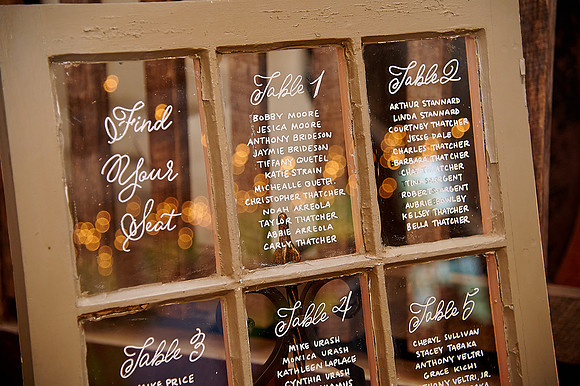 Find
Your
Seat
Table 1
BOBBY MOORE
JESICA MOORE
ANTHONY BRIDESON
JAYMIE BRIDESON
TIFFANY QUETEL
KATIE STRAIN
MICHEALLE QUETEL
CHRISTOPHER THATCHER
NOAH ARREOLA
TAYLOR THATCHER
ABBIE ARREOLA
CARLY THATCHER
Table 2
ARTHUR STANNARD
LINDA STANNARD
COURTNEY THATCHER
JESSE DALE
CHARLES THATCHER
BARBARA THATCHER
THATCHER
TINA SARGENT
ROBERT SARGENT
AUBRIE
KELSEY THATCHER
BELLA THATCHER
Table 3
MIKE PRICE
Table 4
MIKE URASH
MONICA URASH
KATHLEEN LAPLACE
CYNTHIA URASH
Table 5
CHERYL SULLIVAN
STACEY TABAKA
ANTHONY VELTRI
GRACE KICHI
ANTHONY VELTRI, JR.